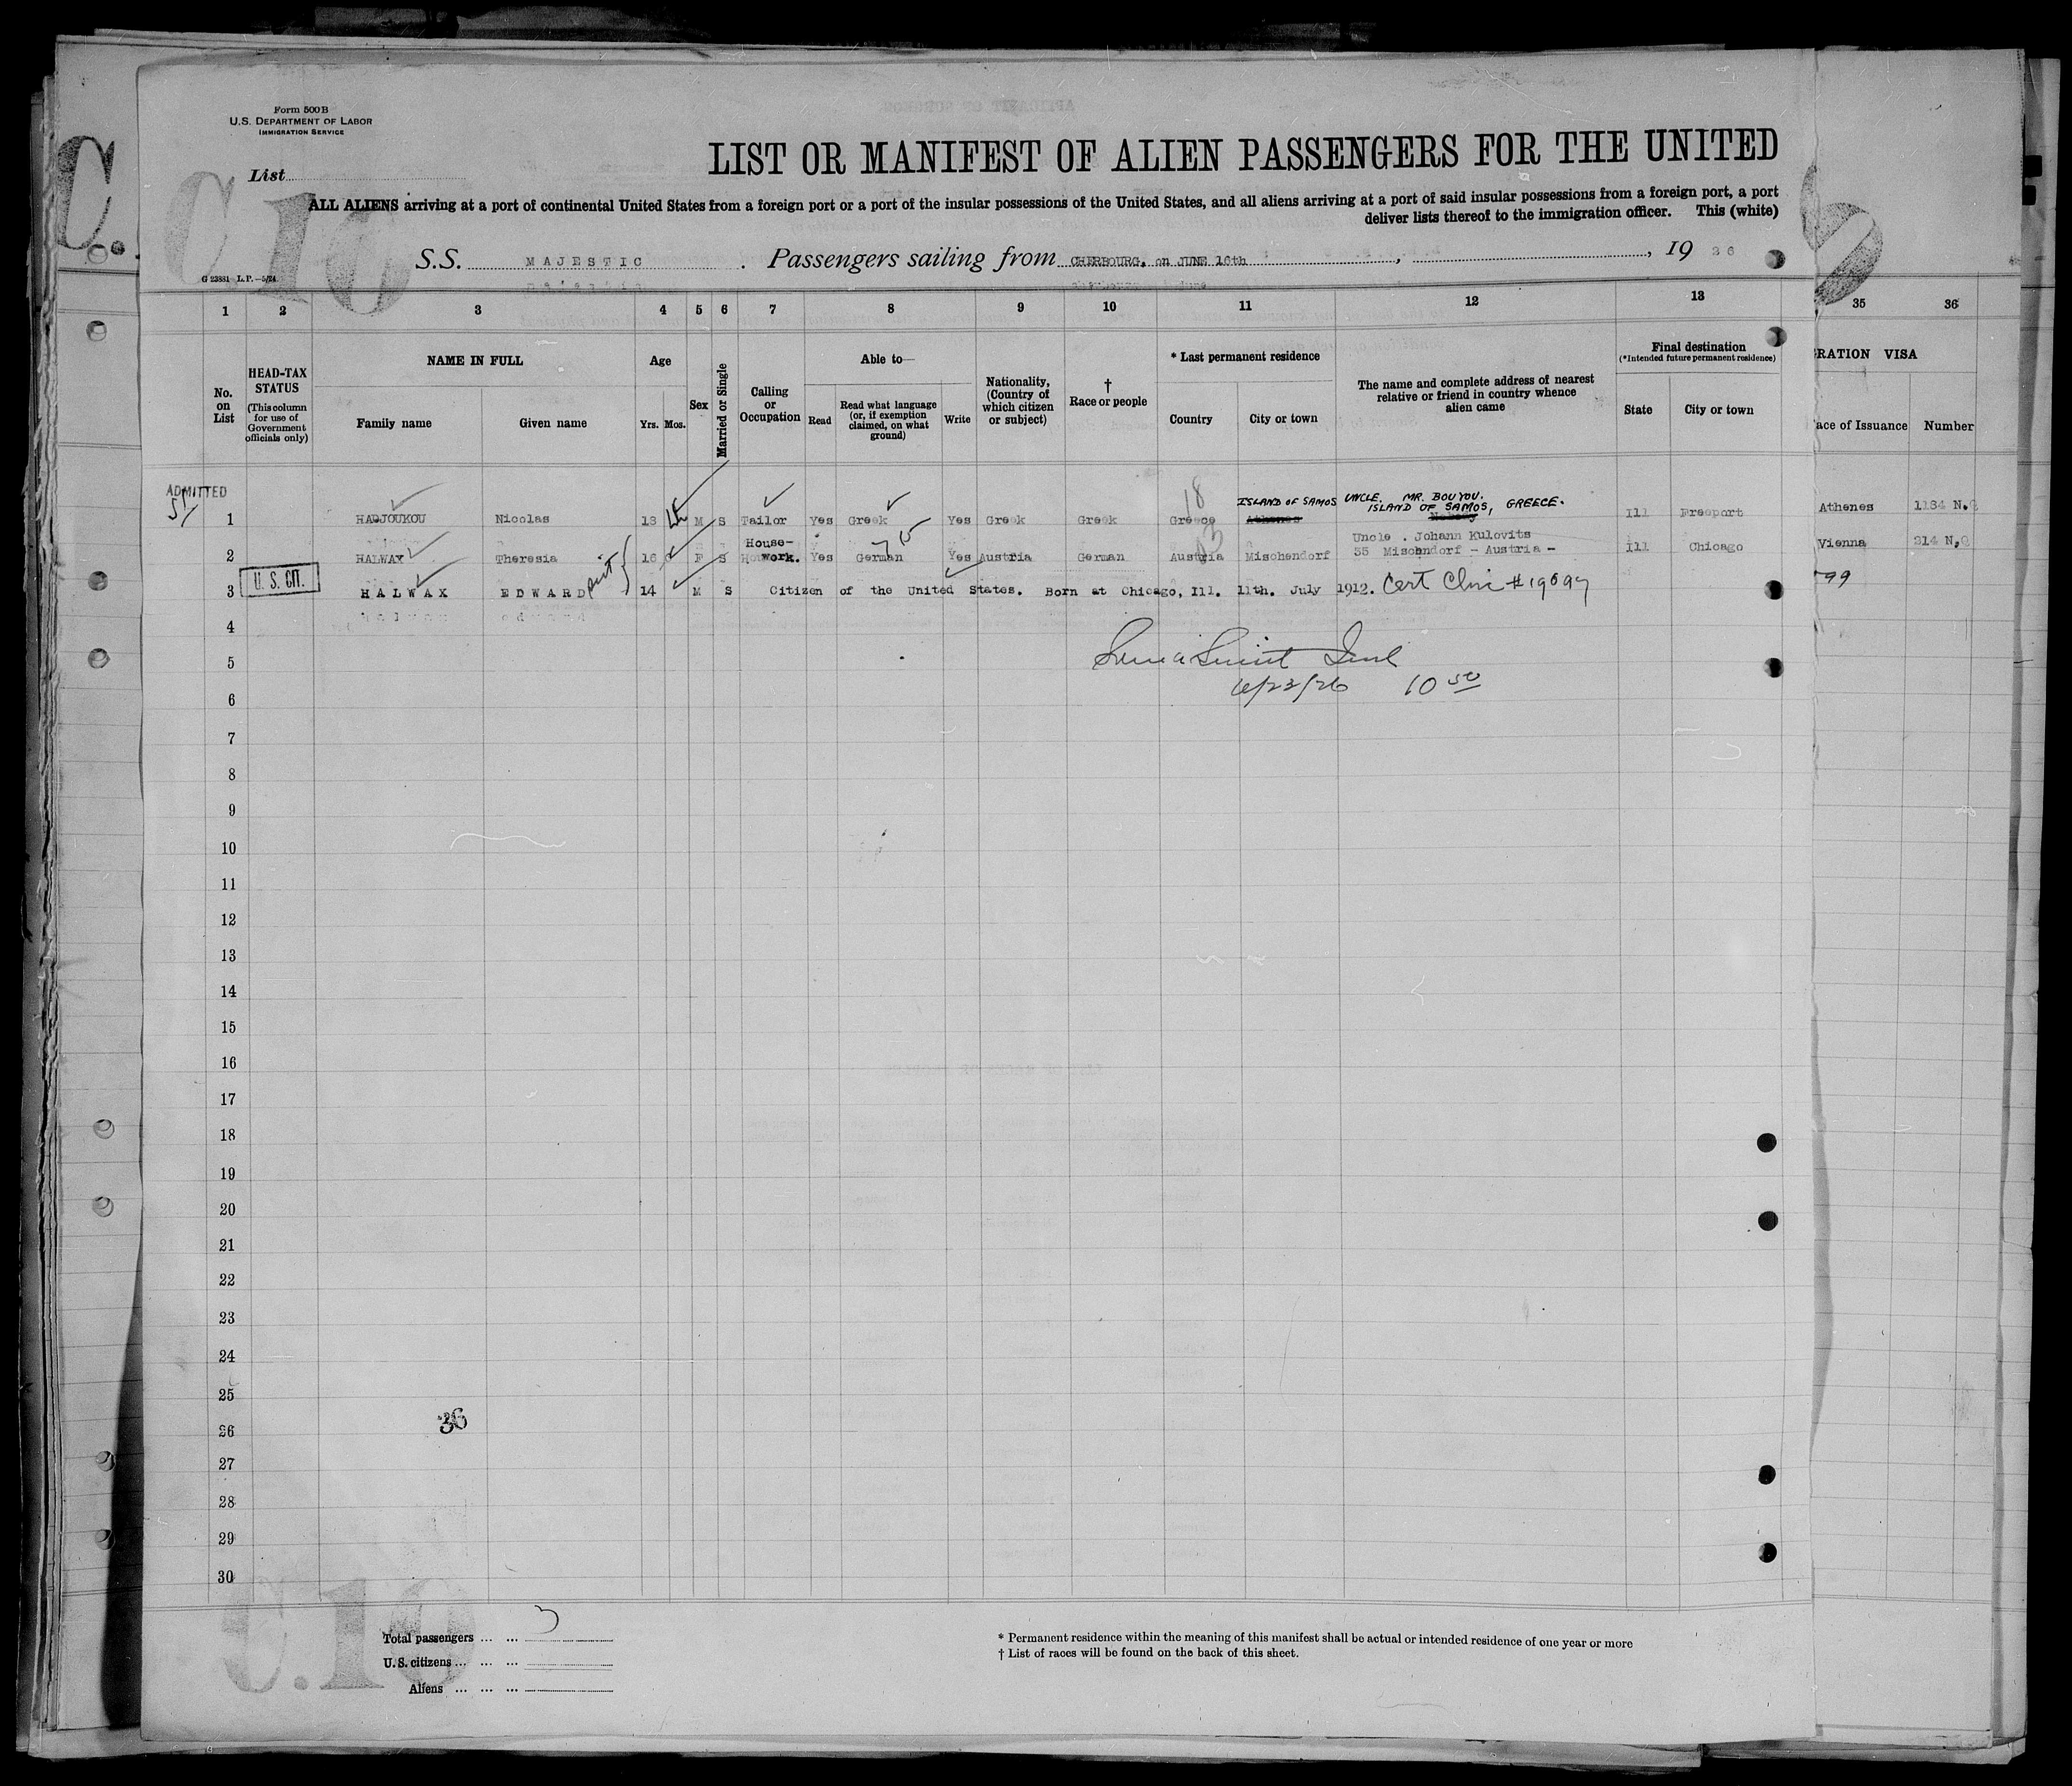 Form 500B
U.S. DEPARTMENT OF LABOR
IMMIGRATION SERVICE
List
C 10
LIST OR MANIFEST OF ALIEN PASSENGERS FOR THE UNITED
ALL ALIENS arriving at a port of continental United States from a foreign port or a port of the insular possessions of the United States, and all aliens arriving at a port of said insular possessions from a foreign port, a port
deliver lists thereof to the immigration officer. This (white)
S.S. MAJESTIC. Passengers sailing from CHERBOURG, on JUNE 16th, 1926
G 23881 L.P.—5/24
1 2 3 4 5 6 7 8 9 10 11 12 13 35 36
No. on List
HEAD-TAX STATUS (This column for use of Government officials only)
NAME IN FULL
Family name Given name
Age
Yrs. Mos.
Sex
Married or Single
Calling or Occupation
Able to—
Read
Read what language (or, if exemption claimed, on what ground)
Write
Nationality, (Country of which citizen or subject)
† Race or people
* Last permanent residence
Country City or town
The name and complete address of nearest relative or friend in country whence alien came
Final destination
(*Intended future permanent residence)
State City or town
RATION VISA
ace of Issuance Number
ADMITTED
ISLAND OF SAMOS UNCLE. MR. BOUYOU.
ISLAND OF SAMOS, GREECE.
1 HADJOUKOU Nicolas 13 M S Tailor Yes Greek Yes Greek Greek Greece Athenes Ill Freeport Athenes 1184 N.Q
2 HALWAX Theresia 16 F S House-work. Yes German Yes Austria German Austria Mischendorf Uncle . Johann Kulovits
35 Mischndorf - Austria - Ill Chicago Vienna 214 N.Q
U. S. CIT.
3 HALWAX EDWARD 14 M S Citizen of the United States. Born at Chicago, Ill. 11th. July 1912. Cert
99
4
5
6/23/26 10 50
6
7
8
9
10
11
12
13
14
15
16
17
18
19
20
21
22
23
24
25
36
26
27
28
29
30
C.10
Total passengers ... ... 3
U.S. citizens ... ... ...
Aliens ... ... ...
* Permanent residence within the meaning of this manifest shall be actual or intended residence of one year or more
† List of races will be found on the back of this sheet.